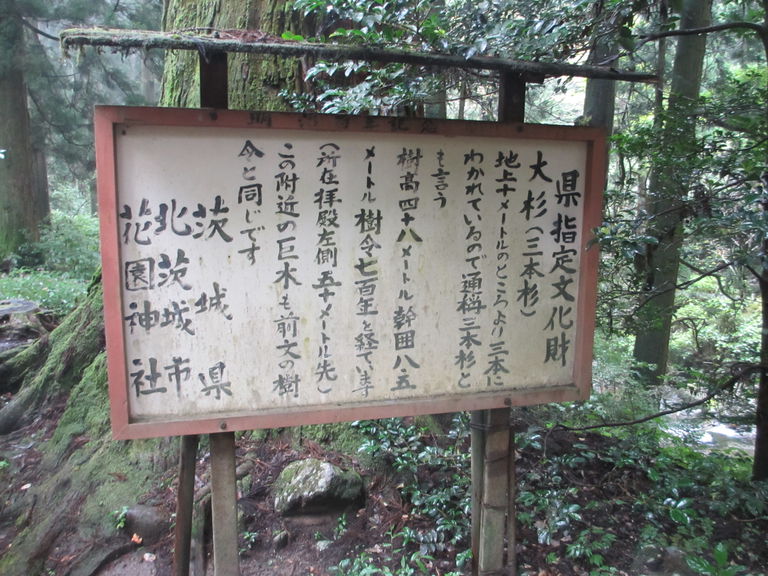 県指定文化財
大杉(三本杉)
地上十メートルのところより三本に
わかれているので通称三本杉と
も言う
樹高四十八メートル幹囲八・五
メートル樹令七百年を経ています
(所在拝殿左側五十メートル先)
この附近の巨木も前文の樹
令と同じです
茨城県
北茨城市
花園神社